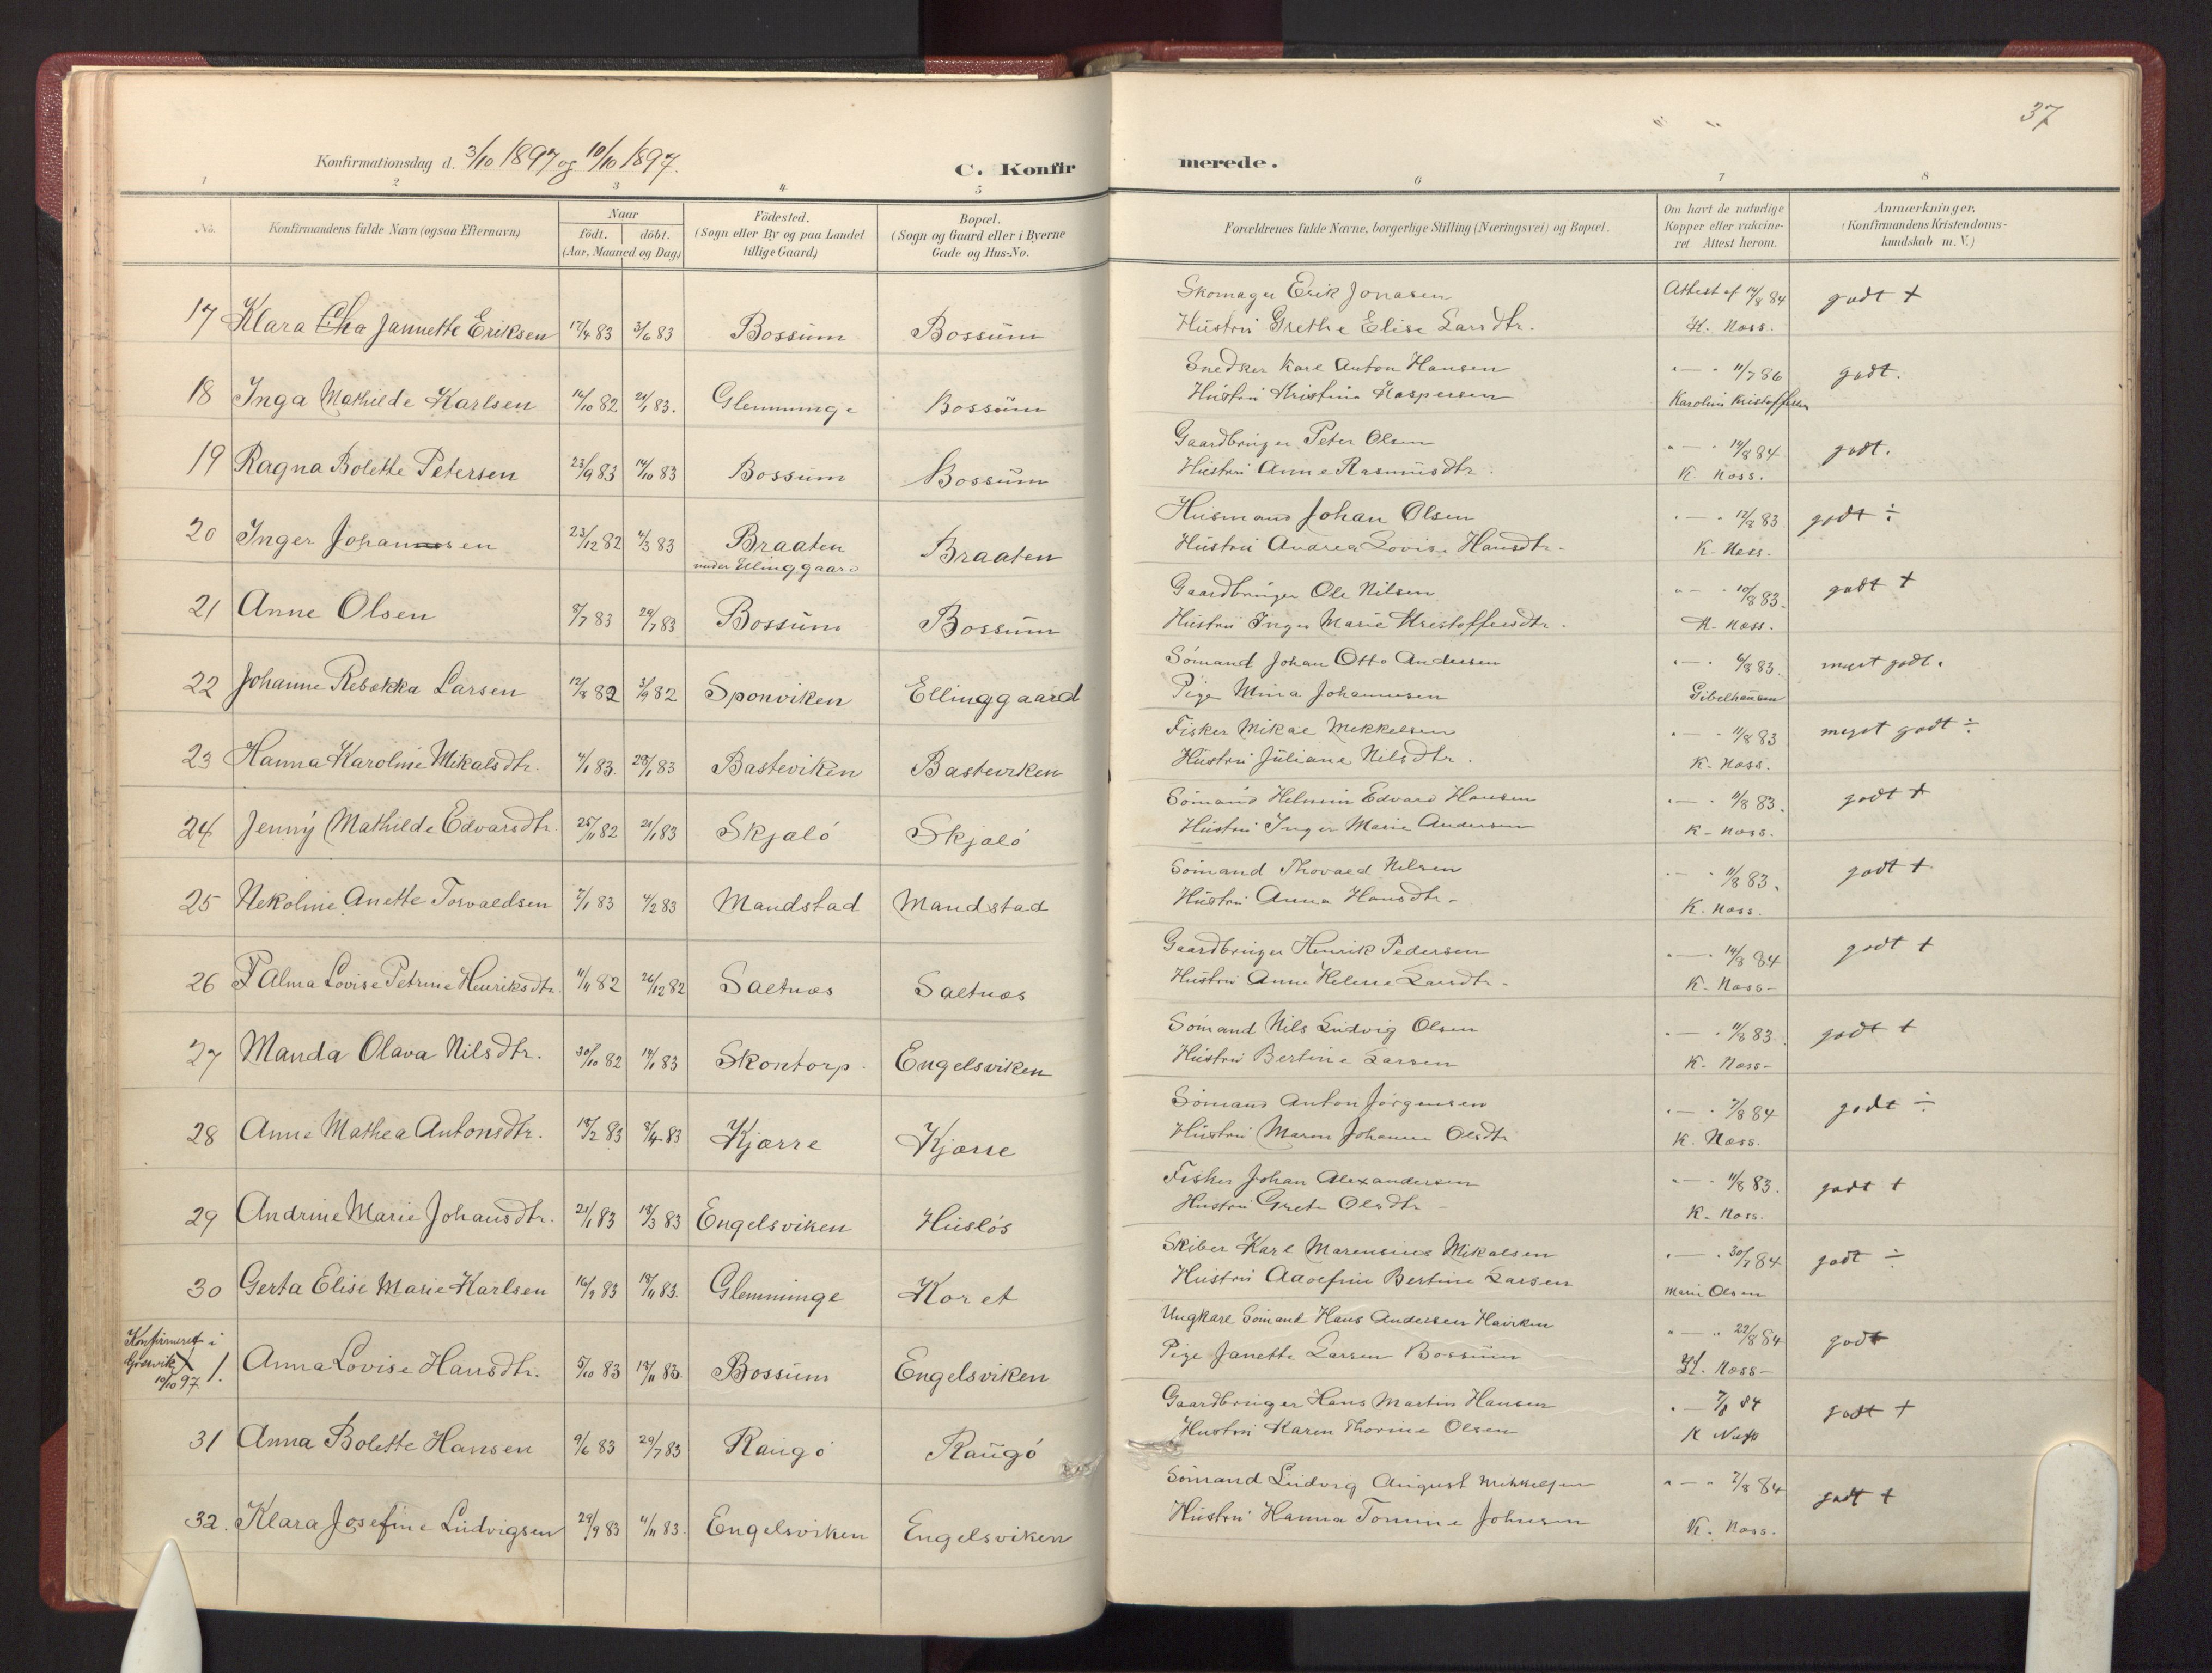 37
Konfirmationsdag d. 3/10 1897 og 10/10 1897.
C. Konfirmerede.
1 2 3 4 5 6 7 8
No.
Konfirmandens fulde Navn (ogsaa Efternavn)
Naar
født. døbt.
(Aar, Maaned og Dag)
Födested.
(Sogn eller By og paa Landet
tillige Gaard)
Bopæl.
(Sogn og Gaard eller i Byerne
Gade og Hus-No.
Forældrenes fulde Navne, borgerlige Stilling (Næringsvei) og Bopæl.
Om havt de naturlige
Kopper eller vakcine-
ret Attest herom.
Anmærkninger.
(Konfirmandens Kristendoms-
kundskab m. V.)
17 Klara Jannette Eriksen 17/4 83 3/6 83 Bossum Bossum Skomager Erik Jonasen Attest af 14/8 84 godt +
Hustru Grethe Elise Larsdtr. K. Næss.
18 Inga Mathilde Karlsen 16/10 82 21/1 83. Glemminge Bossum Snedker Karl Anton Hansen " — " 11/7 86 godt.
Hustru Kristina Kaspersen Karoline Kristoffersen
19 Ragna Bolette Petersen 23/9 83 14/10 83 Bossum Bossum Gaardbruger Peter Olsen " — " 14/8 84 godt.
Hustru Anne Rasmusdtr. K. Næss.
20 Inger Johansen 23/12 82 4/3 83 Braaten Braaten Husmand Johan Olsen " — " 12/8 83. godt ÷
under Elinggaard Hustru Andrea Lovise Hansdtr. K. Næss.
21 Anne Olsen 8/7 83 29/7 83 Bossum Bossum Gaardbruger Ole Nilsen " — " 10/8 83. godt +
Hustru Inger Marie Kristoffersdtr. K. Næss.
22 Johanne Rebekka Larsen 12/8 82 3/9 82 Sponviken Ellinggaard Sömand Johan Otto Andersen " — " 6/8 83. meget godt.
Pige Mina Johannesen Gibelhausen
23 Hanna Karoline Mikalsdtr. 4/1 83. 28/1 83 Basteviken Basteviken Fisker Mikal Mikkelsen " — " 11/8 83 meget godt ÷
Hustru Juliane Nilsdtr. K. Næss.
24 Jenny Mathilde Edvarsdtr. 25/11 82 21/1 83 Skjælö Skjælö Sömand Helmin Edvard Hansen " — " 11/8 83. godt +
Hustru Inger Marie Andersen K. Næss.
25 Nekoline Anette Torvaldsen 7/1 83 4/2 83 Mandstad Mandstad Sömand Thovald Nilsen " — " 11/8 83. godt +
Hustru Anna Hansdtr. K. Næss.
26 Alma Lovise Petrine Henriksdtr. 11/11 82 26/12 82 Saltnæs Saltnæs Gaardbruger Henrik Pedersen " — " 14/8 84 godt +
Hustru Anne Helene Larsdtr. K. Næss-
27 Manda Olava Nilsdtr. 30/10 82 14/1 83 Skontorp. Engelsviken Sömand Nils Ludvig Olsen " — " 11/8 83 godt +
Hustru Bertine Larsen K. Næss-
28 Anne Mathea Antonsdtr. 18/2 83 8/4 83 Kjærre Kjærre Sömand Anton Jörgensen " — " 7/8 84 godt ÷
Hustru Maren Johanne Olsdtr K. Næss.
29 Andrine Marie Johansdtr. 21/1 83 18/3 83 Engelsviken Huslös Fisker Johan Alexandersen " — " 11/8 83. godt +
Hustru Grete Olsdtr K. Næss.
30 Gerta Elise Marie Karlsen 16/9 83 18/11 83. Glemminge Koret Skiber Karl Marensius Mikalsen " — " 30/7 84 godt ÷
Hustru Adolfine Bertine Larsen Marie Olsen
Konfirmeret i
Gresvik
10/10 97. 1. Anna Lovise Hansdtr. 5/10 83 18/11 83. Bossum Engelsviken Ungkarl Sömand Hans Andersen " — " 22/8 84 godt
Pige Janette Larsen Bossum K. Næss-
31 Anna Bolette Hansen 9/6 83 29/7 83 Raugö Raugö Gaardbruger Hans Martin Hansen " — 7/8 84 godt +
Hustru Karen Thorine Olsen K Næss
32. Klara Josefine Ludvigsen 29/9 83 4/11 83. Engelsviken Engelsviken Sömand Ludvig August Mikkelsen " — " 7/8 84 godt +
Hustru Hanna Tomine Johnsen K. Næss.